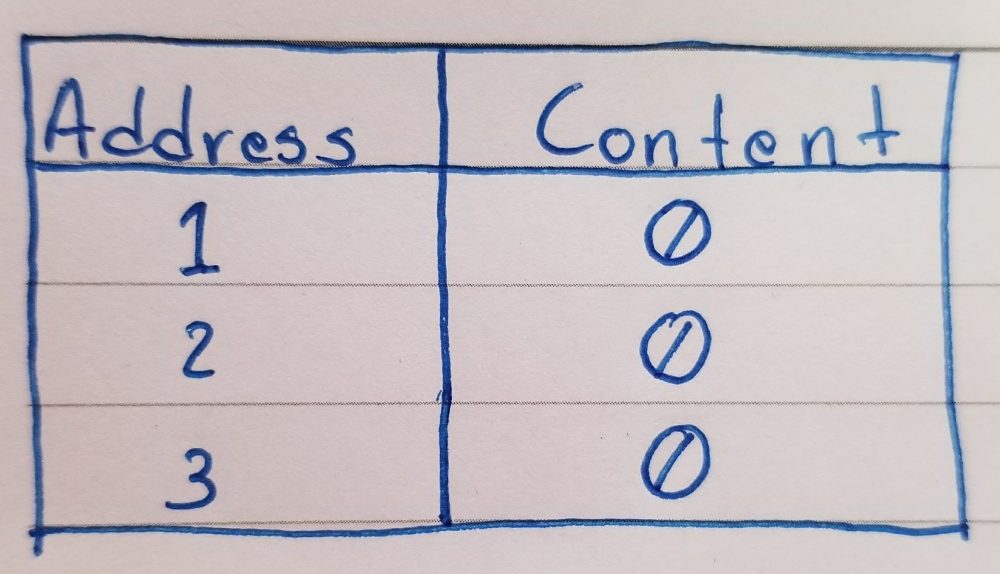 Address Content
1 0
2 0
3 0